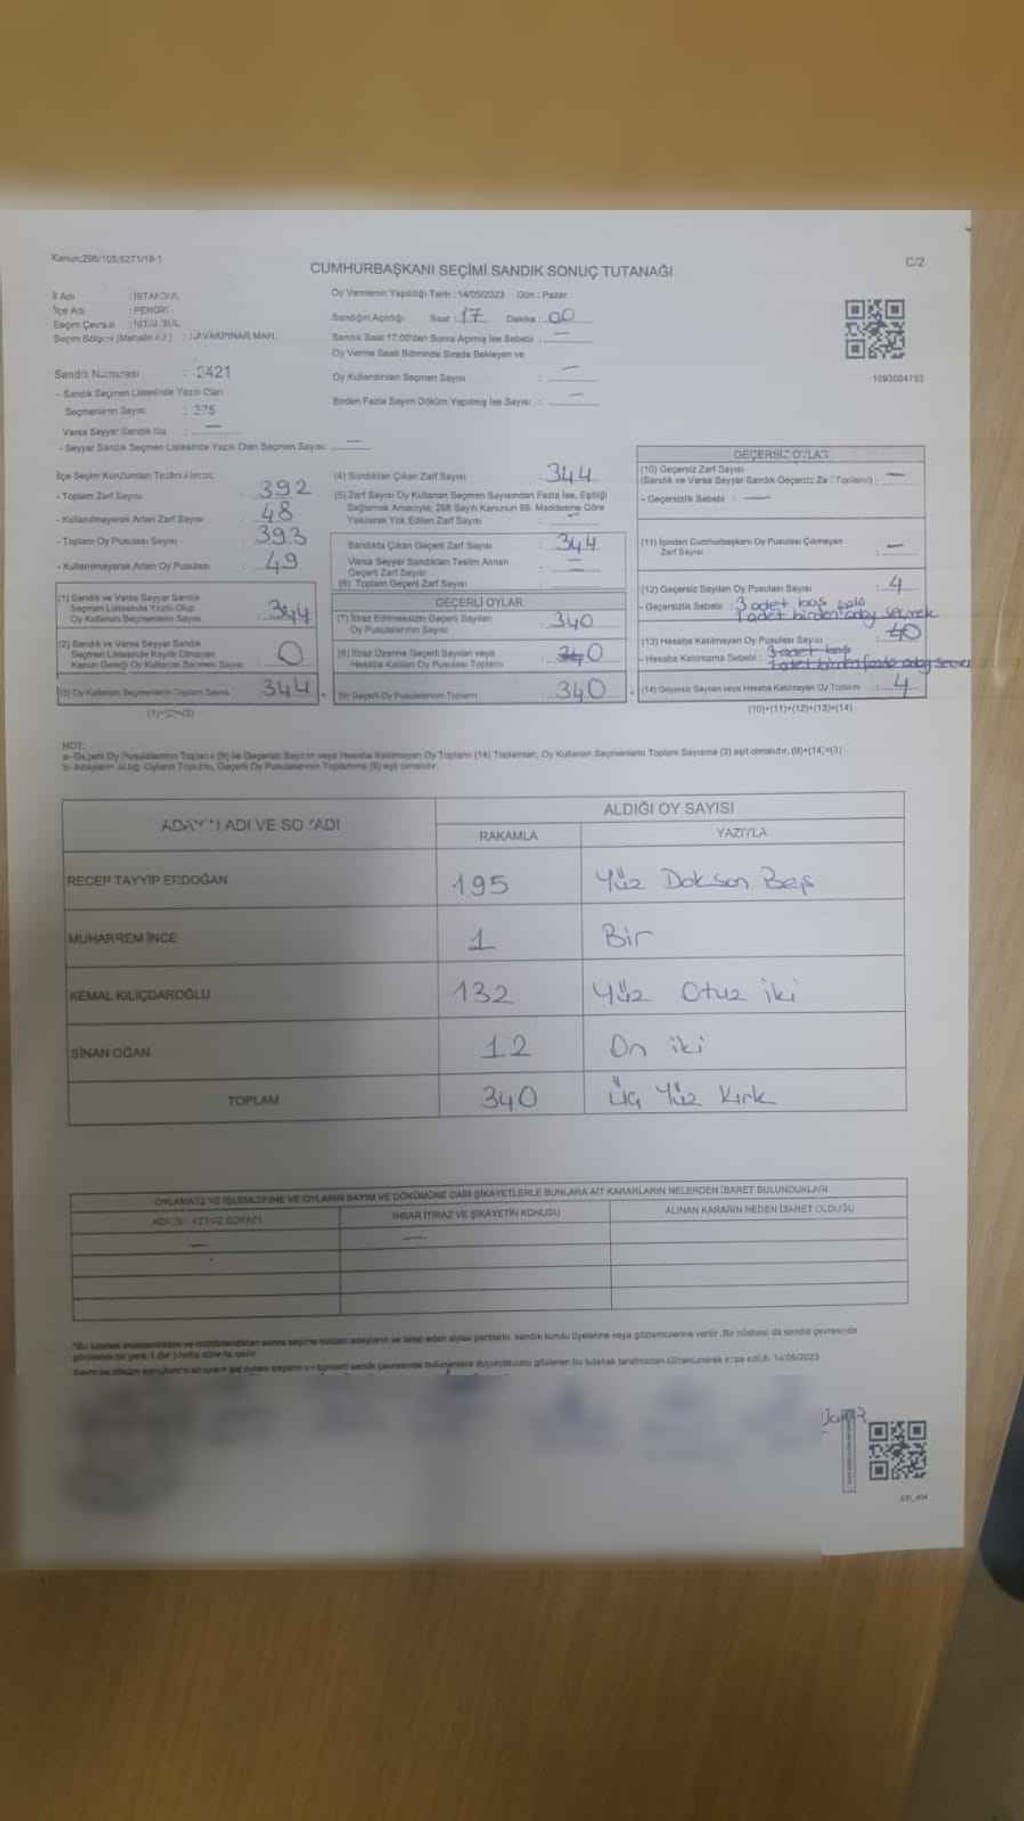 Kanun:298/105,6271/18-1
CUMHURBAŞKANI SEÇİMİ SANDIK SONUÇ TUTANAĞI
C/2
İl Adı : İSTANBUL
İlçe Adı : PENDİK
Seçim Çevresi : İSTANBUL
Seçim Bölgesi (Mahalle
MAH.
Oy Vermenin Yapıldığı Tarih : 14/05/2023 Gün : Pazar
Sandığın Açıldığı Saat : 17 Dakika : 00
Sandık Saat 17:00'den Sonra Açılmış İse Sebebi : —
Oy Verme Saati Bitiminde Sırada Bekleyen ve
Oy Kullandırılan Seçmen Sayısı : —
Birden Fazla Sayım Döküm Yapılmış İse Sayısı : —
1093004793
Sandık Numarası : 2421
- Sandık Seçmen Listesinde Yazılı Olan
Seçmenlerin Sayısı : 375
Varsa Seyyar Sandık No : —
- Seyyar Sandık Seçmen Listesinde Yazılı Olan Seçmen Sayısı : —
İlçe Seçim Kurulundan Teslim Alınan;
- Toplam Zarf Sayısı : 392
- Kullanılmayarak Artan Zarf Sayısı : 48
- Toplam Oy Pusulası Sayısı : 393
- Kullanılmayarak Artan Oy Pusulası : 49
(1) Sandık ve Varsa Seyyar Sandık
Seçmen Listesinde Yazılı Olup
Oy Kullanan Seçmenlerin Sayısı : 344
(2) Sandık ve Varsa Seyyar Sandık
Seçmen Listesinde Kayıtlı Olmayan,
Kanun Gereği Oy Kullanan Seçmen Sayısı : 0
(3) Oy Kullanan Seçmenlerin Toplam Sayısı : 344
(1)+(2)=(3)
(4) Sandıktan Çıkan Zarf Sayısı : 344
(5) Zarf Sayısı Oy Kullanan Seçmen Sayısından Fazla İse, Eşitliği
Sağlamak Amacıyla; 298 Sayılı Kanunun 98. Maddesine Göre
Yakılarak Yok Edilen Zarf Sayısı : —
Sandıkta Çıkan Geçerli Zarf Sayısı : 344
Varsa Seyyar Sandıktan Teslim Alınan
Geçerli Zarf Sayısı : —
(6) Toplam Geçerli Zarf Sayısı : —
GEÇERLİ OYLAR
(7) İtiraz Edilmeksizin Geçerli Sayılan
Oy Pusulalarının Sayısı : 340
(8) İtiraz Üzerine Geçerli Sayılan veya
Hesaba Katılan Oy Pusulası Toplamı : 340 0
(9) Geçerli Oy Pusulalarının Toplamı : 340
GEÇERSİZ OYLAR
(10) Geçersiz Zarf Sayısı
(Sandık ve Varsa Seyyar Sandık Geçersiz Zarf Toplamı) : —
- Geçersizlik Sebebi : —
(11) İçinden Cumhurbaşkanı Oy Pusulası Çıkmayan
Zarf Sayısı : —
(12) Geçersiz Sayılan Oy Pusulası Sayısı : 4
- Geçersizlik Sebebi : 3 adet boş
1 adet birden aday seçmek
(13) Hesaba Katılmayan Oy Pusulası Sayısı : 40
- Hesaba Katılmama Sebebi : 3 adet boş
1 adet birden fazla aday
(14) Geçersiz Sayılan veya Hesaba Katılmayan Oy Toplamı : 4
(10)+(11)+(12)+(13)=(14)
NOT:
a- Geçerli Oy Pusulalarının Toplamı (9) ile Geçersiz Sayılan veya Hesaba Katılmayan Oy Toplamı (14) Toplamları, Oy Kullanan Seçmenlerin Toplam Sayısına (3) eşit olmalıdır. (9)+(14)=(3)
b- Adayların Aldığı Oyların Toplamı, Geçerli Oy Pusulalarının Toplamına (9) eşit olmalıdır.
ADAYIN ADI VE SOYADI
ALDIĞI OY SAYISI
RAKAMLA YAZIYLA
RECEP TAYYİP ERDOĞAN 195 Yüz Doksan Beş
MUHARREM İNCE 1 Bir
KEMAL KILIÇDAROĞLU 132 Yüz Otuz iki
SİNAN OĞAN 12 On iki
TOPLAM 340 Üç Yüz Kırk
OYLAMA İŞ VE İŞLEMLERİNE VE OYLARIN SAYIM VE DÖKÜMÜNE DAİR ŞİKAYETLERLE BUNLARA AİT KARARLARIN NELERDEN İBARET BULUNDUKLARI
İHBAR İTİRAZ VE ŞİKAYETİN KONUSU ALINAN KARARIN NEDEN İBARET OLDUĞU
— —
sandık kurulu üyelerine veya gözlemcilerine verilir. Bir nüshası da sandık çevresinde
14/05/2023